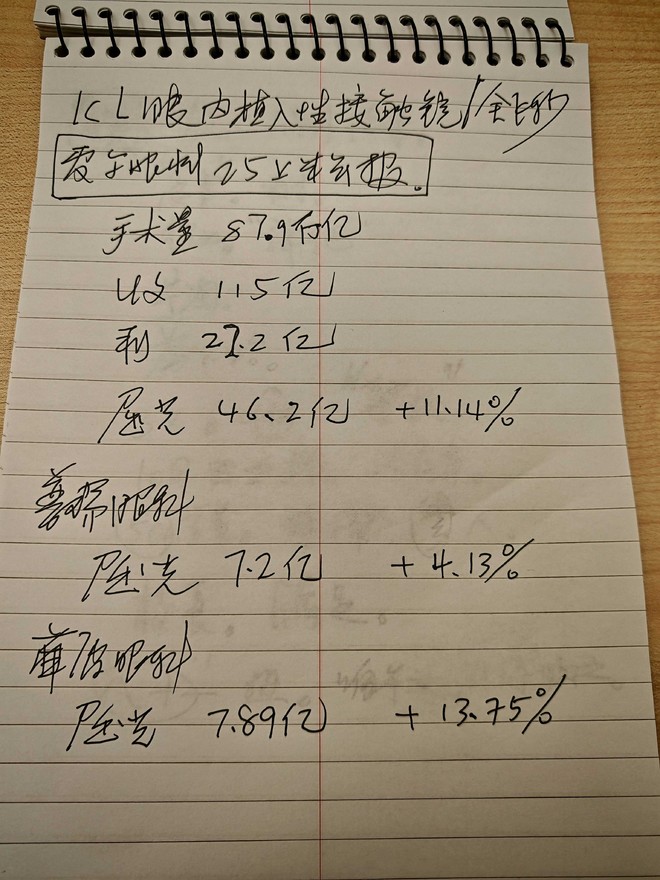 ICL眼内植入性接触镜/全飞秒
爱尔眼科 25上半年报.
手术量 87.9万亿
收 115亿
利 27.2亿
屈光 46.2亿 +11.14%
普瑞眼科
屈光 7.2亿 +4.13%
华厦眼科
屈光 7.89亿 +13.75%